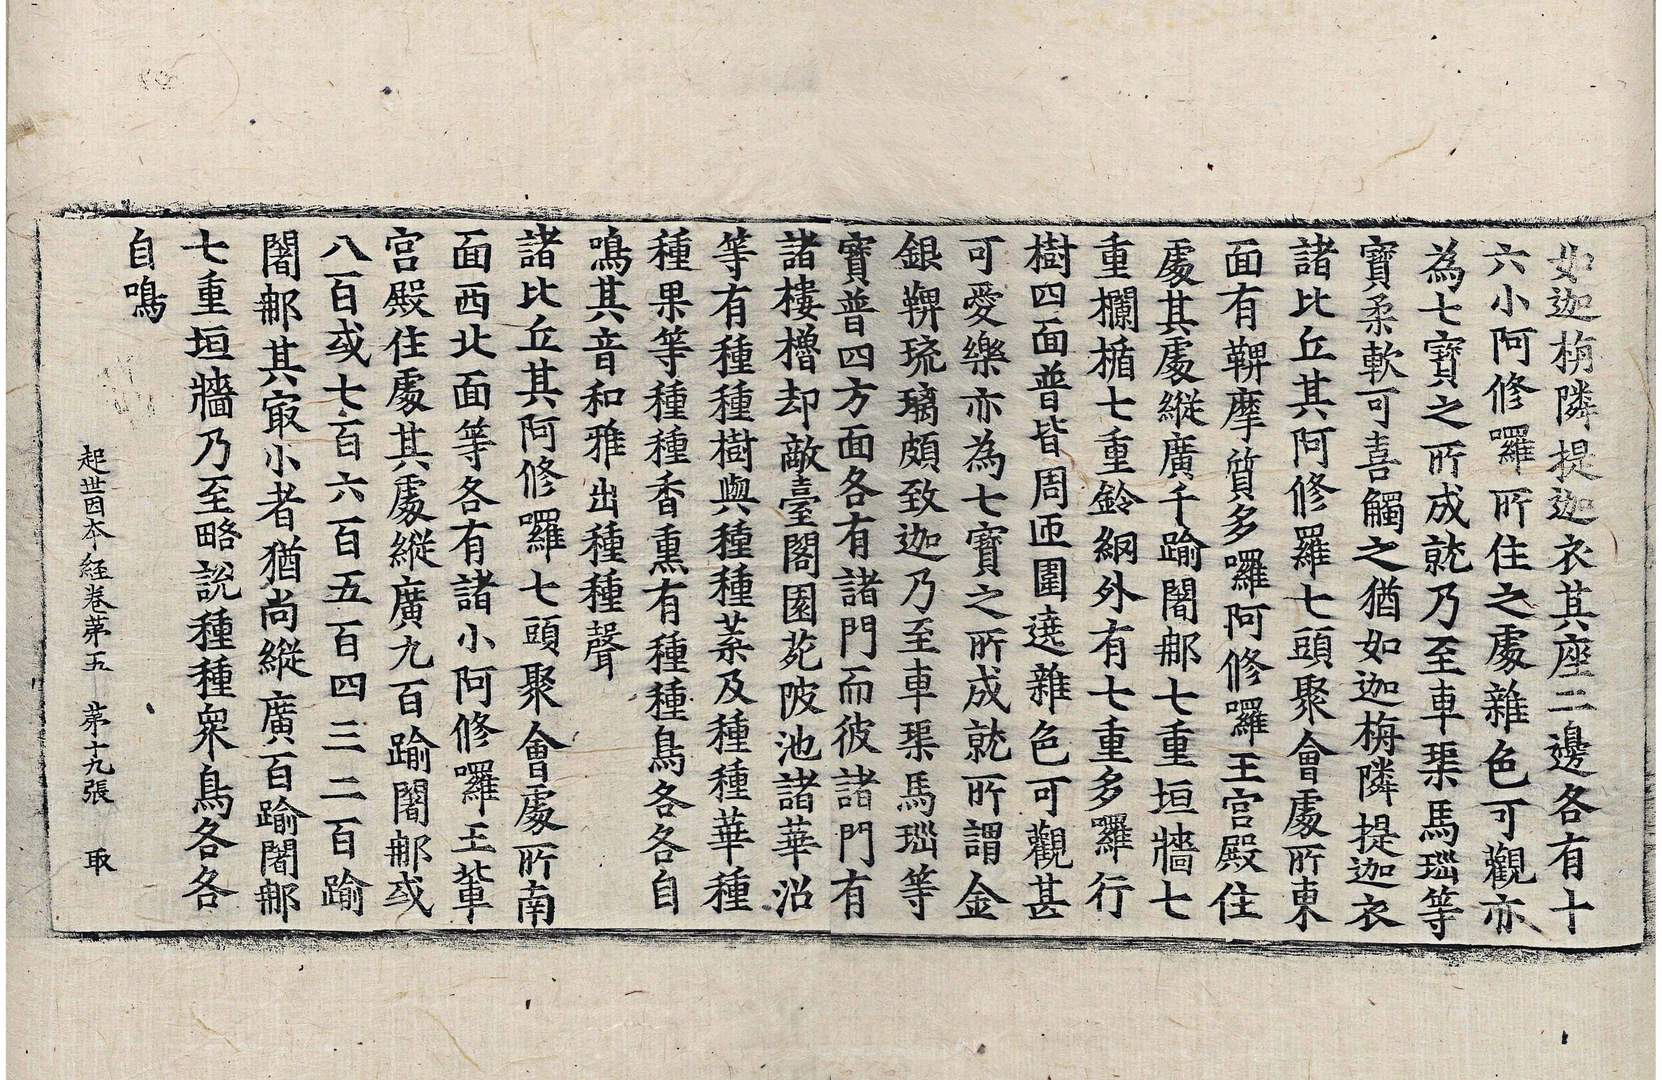 如迦栴隣提迦衣其座二邊各有十
六小阿修囉所住之處雜色可觀亦
為七寶之所成就乃至車璖馬瑙等
寶柔軟可喜觸之猶如迦栴隣提迦衣
諸比丘其阿修羅七頭聚會處所東
面有鞞摩質多囉阿修囉王宮殿住
處其處縱廣千踰闍那七重垣牆七
重欄楯七重鈴網外有七重多囉行
樹四面普皆周匝圍遶雜色可觀甚
可愛樂亦為七寶之所成就所謂金
銀鞞琉璃頗致迦乃至車璖馬瑙等
寶普四方面各有諸門而彼諸門有
諸樓櫓却敵臺閣園苑陂池諸華沼
等有種種樹與種種葉及種種華種
種果等種種香熏有種種鳥各各自
鳴其音和雅出種種聲
諸比丘其阿修囉七頭聚會處所南
面西北面等各有諸小阿修囉王輩
宮殿住處其處縱廣九百踰闍那或
八百或七百六百五百四三二百踰
闍那其冣小者猶尚縱廣百踰闍那
七重垣牆乃至略說種種衆鳥各各
自鳴
起世因本經卷第五 第十九張 取